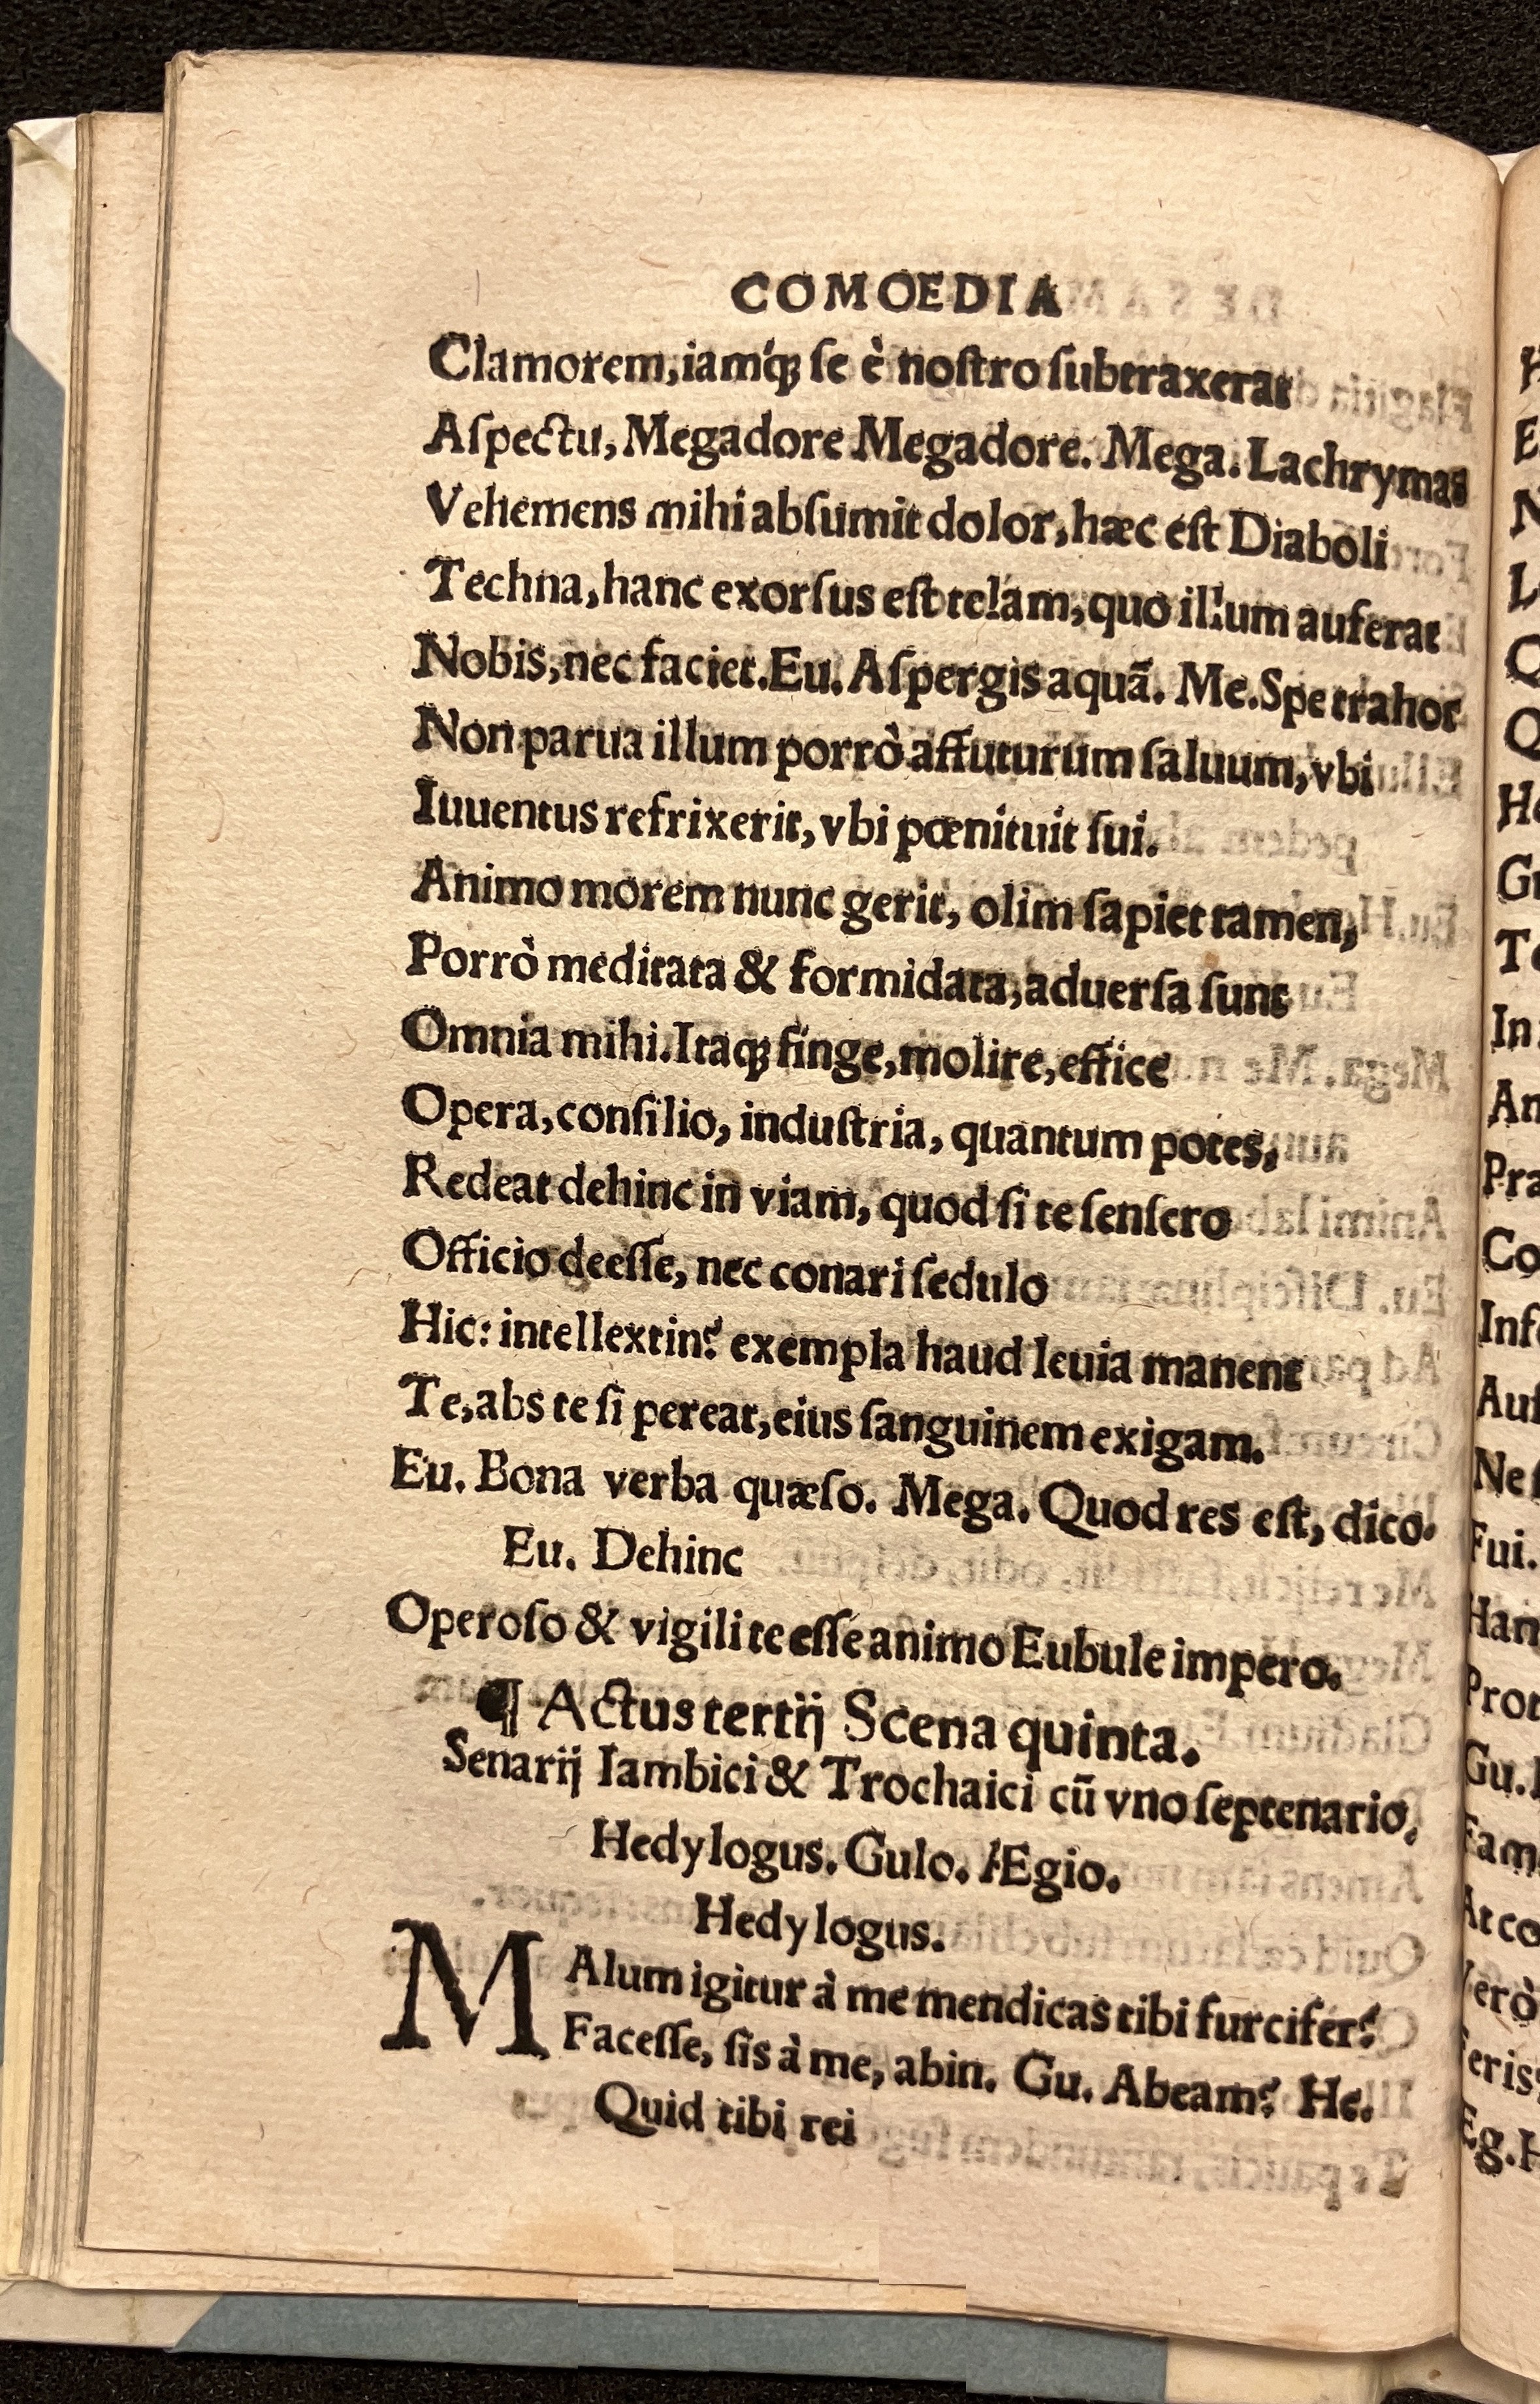 COMOEDIA
Clamorem, iamq́ꝫ ſe è noſtro ſubtraxerat
Aſpectu, Megadore Megadore. Mega. Lachrymas
Vehemens mihi abſumit dolor, hæc eſt Diaboli
Techna, hanc exorſus eſt telam, quo illum auferat
Nobis, nec faciet. Eu. Aſpergis aquã. Me. Spe trahor
Non parua illum porrò affuturum ſaluum, vbi
Iuuentus refrixerit, vbi pœnituit ſui.
Animo morem nunc gerit, olim ſapiet tamen,
Porrò meditata & formidata, aduerſa ſunt
Omnia mihi. Itaqꝫ finge, molire, effice
Opera, conſilio, induſtria, quantum potes,
Redeat dehinc in viam, quod ſi te ſenſero
Officio deeſſe, nec conari ſedulo
Hic: intellextin? exempla haud leuia manent
Te, abs te ſi pereat, eius ſanguinem exigam.
Eu. Bona verba quæſo. Mega. Quod res eſt, dico.
Eu. Dehinc
Operoſo & vigili te eſſe animo Eubule impero.
¶ Actus tertij Scena quinta.
Senarij Iambici & Trochaici cũ vno ſeptenario.
Hedylogus. Gulo. Ægio.
Hedylogus.
MAlum igitur à me mendicas tibi furcifer?
Faceſſe, ſis à me, abin. Gu. Abeam? He.
Quid tibi rei